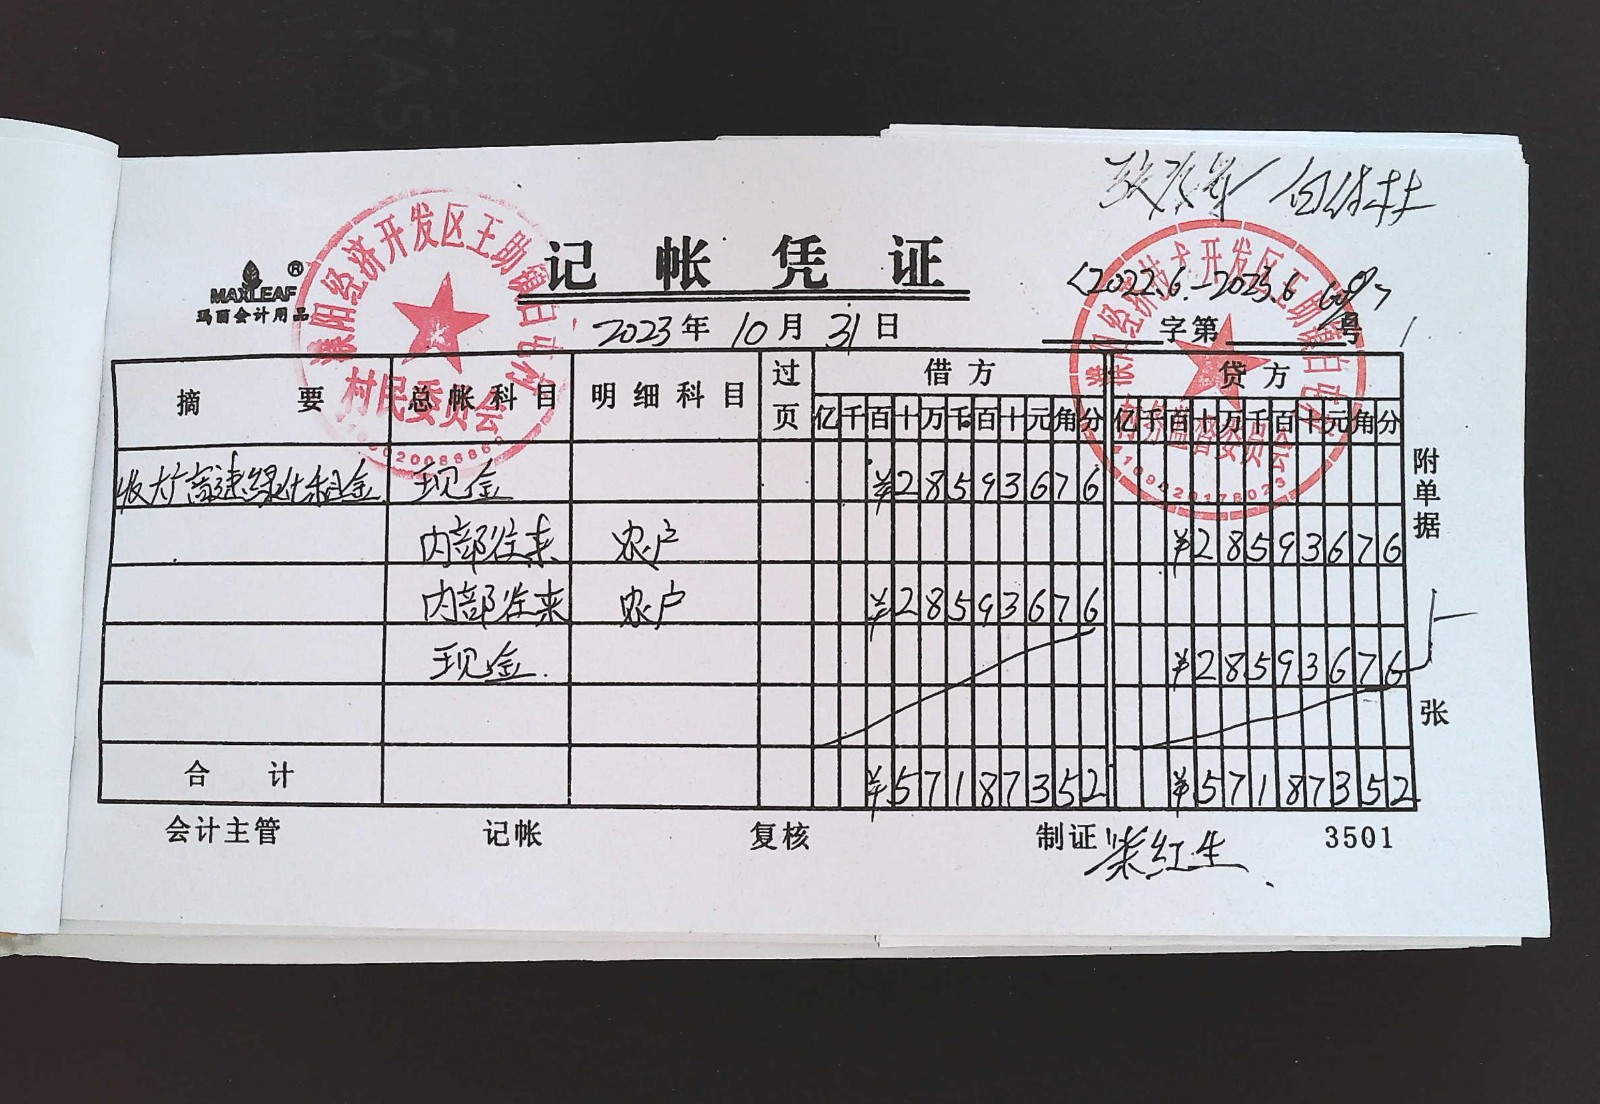 白付林
记帐凭证
MAXLEAF ®
玛丽会计用品
<2022.6.-2023.6
2023年10月31日
字第 号
濮阳经济开发区王助镇白
村民委员会
村务监督委员会
4109020178023
摘要 总帐科目 明细科目 过页 借方 贷方
亿千百十万千百十元角分 亿千百十万千百十元角分
收大广高速绿化租金 现金 ¥28593676
内部往来 农户 ¥28593676
内部往来 农户 ¥28593676
现金. ¥28593676
合计 ¥57187352 ¥57187352
附单据 张
会计主管 记帐 复核 制证 柴红生 3501